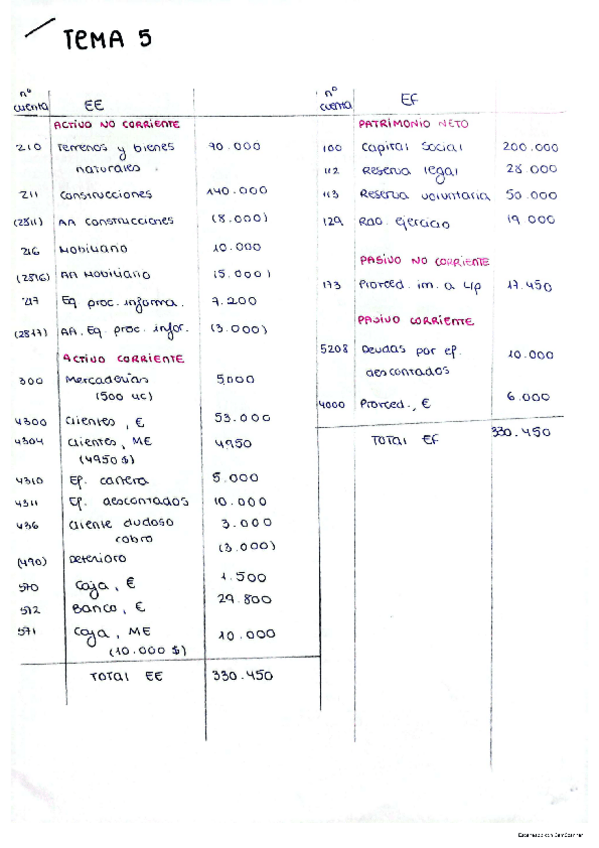 TEMA 5
nº cuenta EE
ACTIVO NO CORRIENTE
210 Terrenos y bienes naturales 90.000
211 Construcciones 140.000
(2811) AA Construcciones (8.000)
216 Mobiliario 10.000
(2816) AA Mobiliario (5.000)
217 Eq proc. informa. 7.200
(2817) AA. Eq. proc. infor. (3.000)
ACTIVO CORRIENTE
300 Mercaderías 5000
(500 uc)
4300 Clientes, € 53.000
4304 Clientes, ME 4950
(4950 $)
4310 Ef. cartera 5.000
4311 Ef. descontados 10.000
436 Cliente dudoso cobro 3.000
(490) Deterioro (3.000)
570 Caja, € 1.500
572 Banco, € 29.800
571 Caja, ME 10.000
(10.000 $)
TOTAL EE 330.450
nº cuenta EF
PATRIMONIO NETO
100 Capital Social 200.000
112 Reserva legal 28.000
113 Reserva voluntaria 50.000
129 Rdo. ejercicio 19 000
PASIVO NO CORRIENTE
173 Proved. im. a L/p 17.450
PASIVO CORRIENTE
5208 Deudas por ef. descontados 10.000
4000 Proved., € 6.000
TOTAL EF 330.450
Escaneado con CamScanner